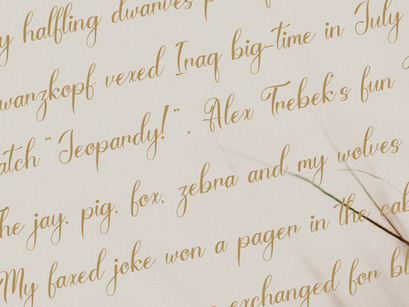 y halfling dwarves p
wanzkopf vexed Iraq big-time in July
atch "Jeopardy!". Alex Trebek's fun
he jay, pig, fox, zebra and my wolves
My faxed joke won a pager in the cab
exchanged for bl